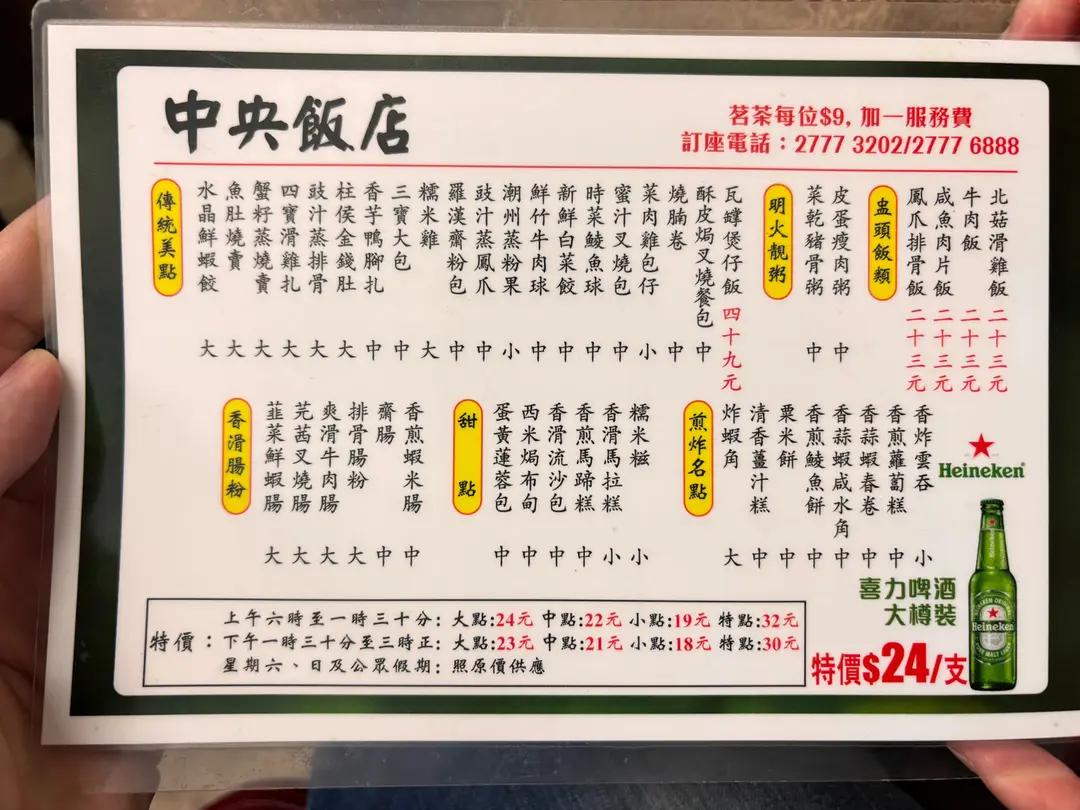 中央飯店
茗茶每位$9, 加一服務費
訂座電話：2777 3202/2777 6888
傳統美點
水晶鮮蝦餃 大
魚肚燒賣 大
蟹籽蒸燒賣 大
四寶滑雞扎 大
豉汁蒸排骨 大
柱侯金錢肚 大
香芋鴨腳扎 中
三寶大包 中
糯米雞 大
羅漢齋粉包 中
豉汁蒸鳳爪 中
潮州蒸粉果 小
鮮竹牛肉球 中
新鮮白菜餃 中
時菜鯪魚球 中
蜜汁叉燒包 中
菜肉雞包仔 小
燒腩卷 中
酥皮焗叉燒餐包 中
瓦罉煲仔飯 四十九元
明火靚粥
菜乾豬骨粥 中
皮蛋瘦肉粥 中
盅頭飯類
鳳爪排骨飯 二十三元
咸魚肉片飯 二十三元
牛肉飯 二十三元
北菇滑雞飯 二十三元
香滑腸粉
韮菜鮮蝦腸 大
芫茜叉燒腸 大
爽滑牛肉腸 大
排骨腸粉 大
齋腸 中
香煎蝦米腸 中
甜點
蛋黃蓮蓉包 中
西米焗布甸 中
香滑流沙包 中
香煎馬蹄糕 中
香滑馬拉糕 小
糯米糍 小
煎炸名點
炸蝦角 大
清香薑汁糕 中
粟米餅 中
香煎鯪魚餅 中
香蒜蝦咸水角 中
香蒜蝦春卷 中
香煎蘿蔔糕 中
香炸雲吞 小
Heineken
喜力啤酒
大樽裝
特價$24/支
特價：
上午六時至一時三十分: 大點:24元 中點:22元 小點:19元 特點:32元
下午一時三十分至三時正: 大點:23元 中點:21元 小點:18元 特點:30元
星期六、日及公眾假期: 照原價供應
Heineken